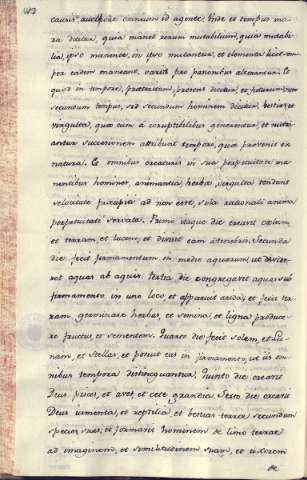 causis, auctore omnium id agente. Unde et tempus mo-
ra dicitur, quia manet rerum mutabilium, quia mutabi-
lia, ipso manente, in ipso mutantur, et elementa licet sem-
per eadem maneant, variis pro partibus alterantur. Et
quod in tempore, praeteritum, praesens dicitur, et futurum non
secundum tempus, sed secundum hominem dicitur, bestias, et
virgulta, quae cum à corruptibilibus generentur, et nutri-
antur successionem attribuit tempore, quae provenit ex
natura. Ex omnibus creaturis in sua perpetuitate ma-
nentibus homines, animantia, herbae, virgulta tendunt
velocitate praecipiti ad non esse, sola rationali anima
perpetuitate servata. Primo itaque die creavit coelum
et terram, et lucem, et divisit eam à tenebris. Secunda
die fecit firmamentum in medio aquarum, ut divide-
ret aquas ab aquis. tertia die congregavit aquas sub
firmamento in uno loco et apparuit arida; et fecit ter-
ram germinare herbas, et semina et ligna produce-
re fructus, et sementem. Quarto die fecit solem, et Lu-
nam, et Stellas, et posuit eas in firmamento, ut iis om-
nibus tempora distinguantur. Quinto die creavit
Deus pisces, et aves, et cete grandia. Sexto die creavit
Deus iumenta, et reptilia, et bestias terrae secundum
species suas; et formavit hominem de limo terrae
ad imaginem, et similitudinem suam, et uxorem
de